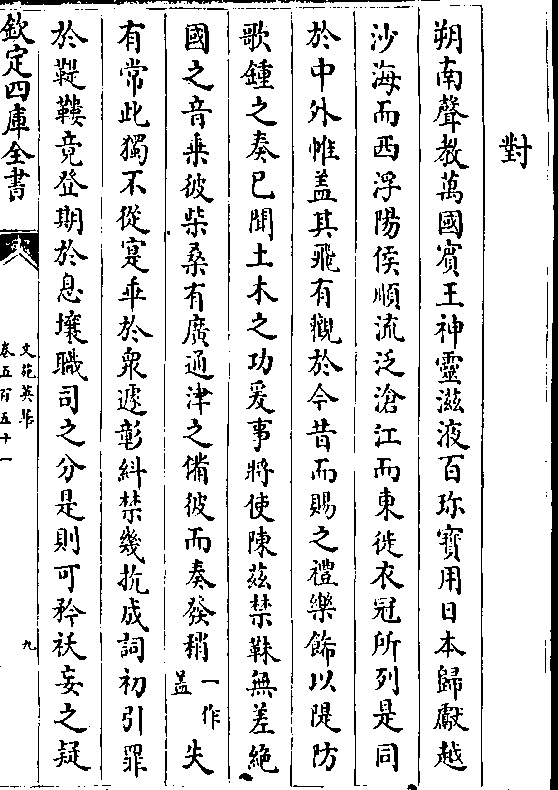 對
朔南聲教萬國賓王神靈滋液百珎寳用日本歸獻越
沙海而西浮陽侯順流泛滄江而東徙衣冠所列是同
於中外帷盖其飛有觀於今昔而賜之禮樂飾以隄防
歌鍾之奏已聞土木之功爰事將使陳兹禁靺無差絶
國之音乗彼柴桑有廣通津之備彼而奏發稍一作盖失
有常此獨不從寔乖於衆遽彰糾禁幾抗成詞初引罪
於鞮鞻竟登期於息壤職司之分是則可矜祅妄之疑
欽定四庫全書
文苑英華
卷五百五十一
九